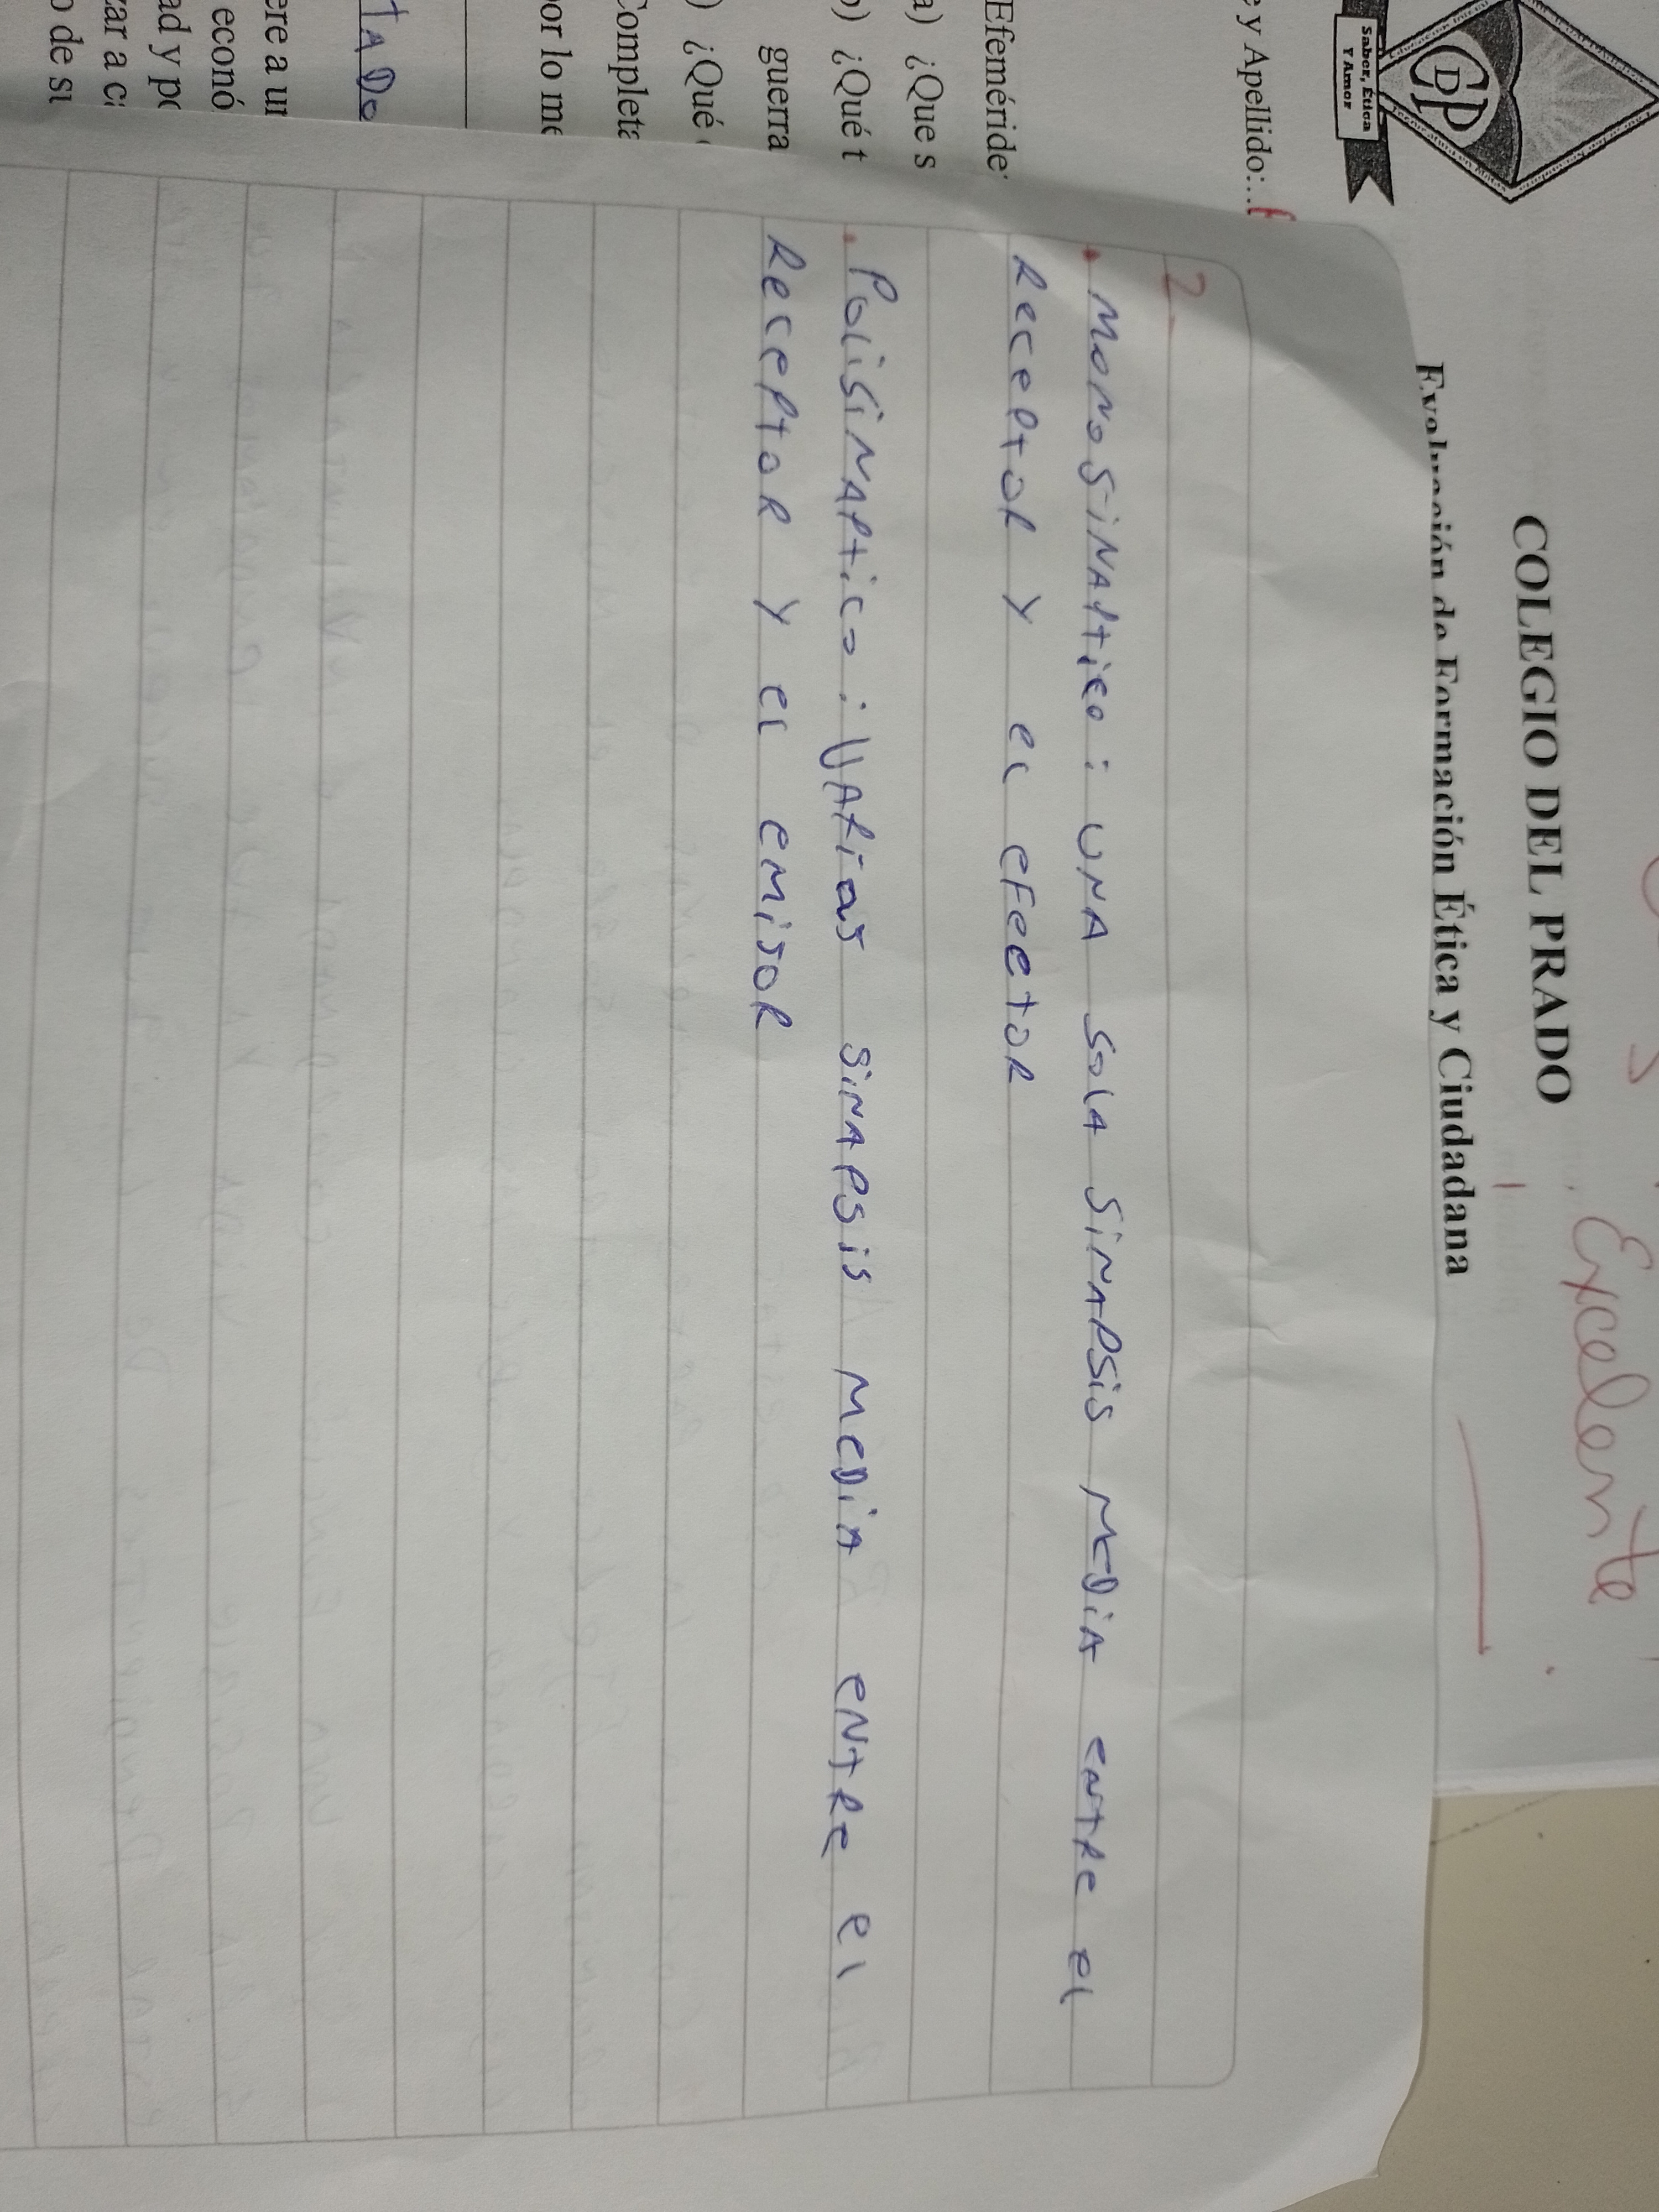 Excelente
COLEGIO DEL PRADO
Evaluación de Formación Ética y Ciudadana
CDP
Saber, Ética
Y Amor
e y Apellido:...
Efeméride
a) ¿Que s
b) ¿Qué t
guerra
) ¿Qué
Completa
por lo me
TADO
ere a un
econó
ad y po
zar a ca
o de su
2-
. MONOSINAPtico: UNA SOlA SiNAPSis MeDiA eNtRe el
ReCePtoR Y el eFectoR
. PoliSiNAPtico: VARias SiNAPSis MeDiA eNtRe el
ReCePtoR Y el eMiSoR